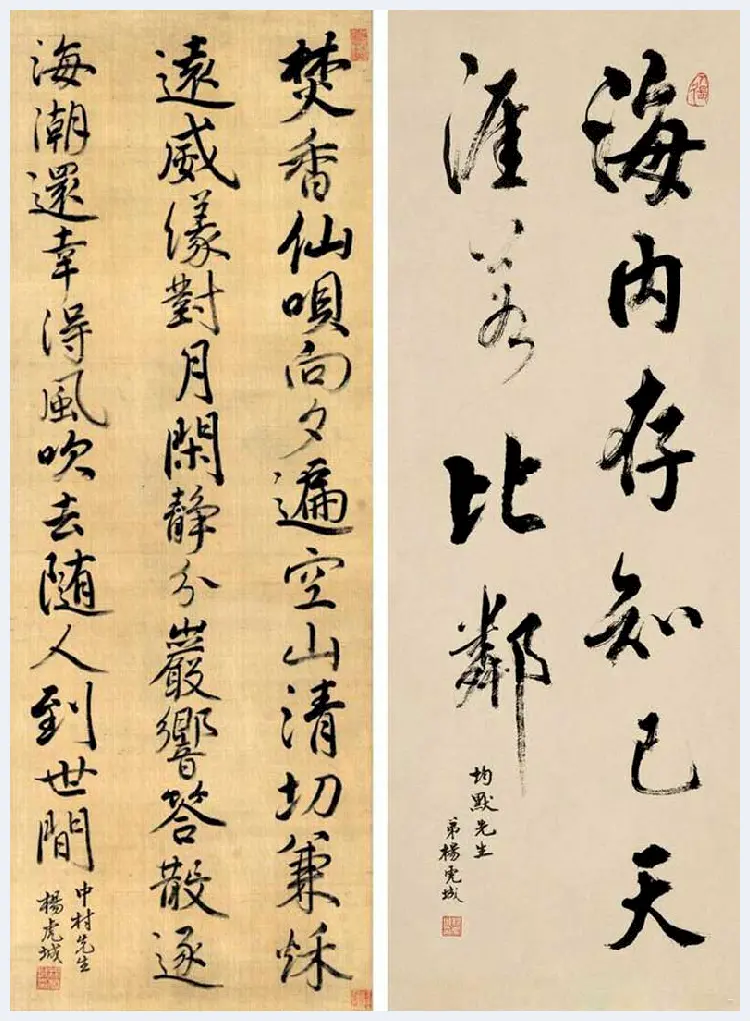 海内存知己天
涯若比鄰
均默先生
弟楊虎城
焚香仙唄向夕遍空山清切兼秋
遠威緣對月閑靜分巖響答散逐
海潮還幸得風吹去随人到世間
中村先生
楊虎城